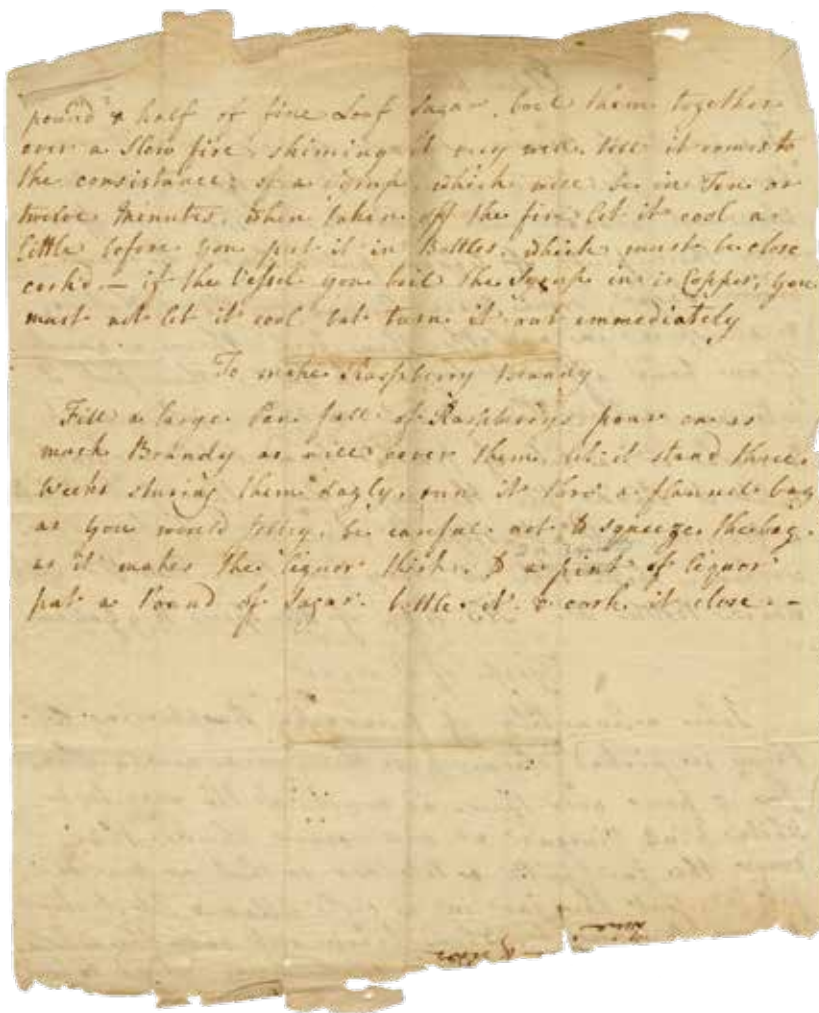 pound & half of fine Loaf Sugar, boil them together
over a Slow fire, skiming it very well till it comes to
the consistance of a Syrup, which will be in Ten or
twelve minutes, when taken off the fire let it cool a
little before you put it in Bottles, which must be close
cork'd — if the Vessel you boil the Syrup in is Copper, you
must not let it cool but turn it out immediately
To make Raspberry Brandy
Fill a large Pan full of Raspberrys pour on as
much Brandy as will cover them, let it stand three
Weeks stiring them dayly, run it thro' a flannel bag
as you would Jelly, be careful not to squeeze the bag
as it makes the liquor thick. To a pint of liquor
put a Pound of Sugar. bottle it & cork it close —